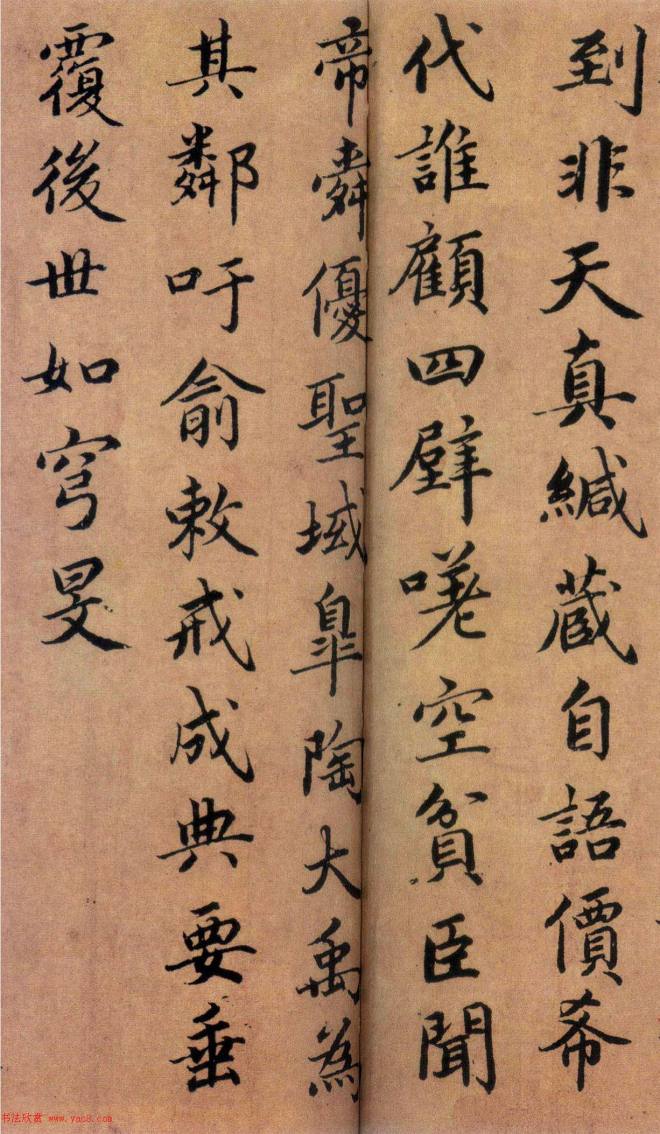 到非天真緘蔵自語價希
代誰顧四壁嘆空貧臣聞
帝舜優聖域皐陶大禹為
其鄰吁俞敕戒成典要垂
覆後世如穹旻
书法欣赏 www.yac8.com